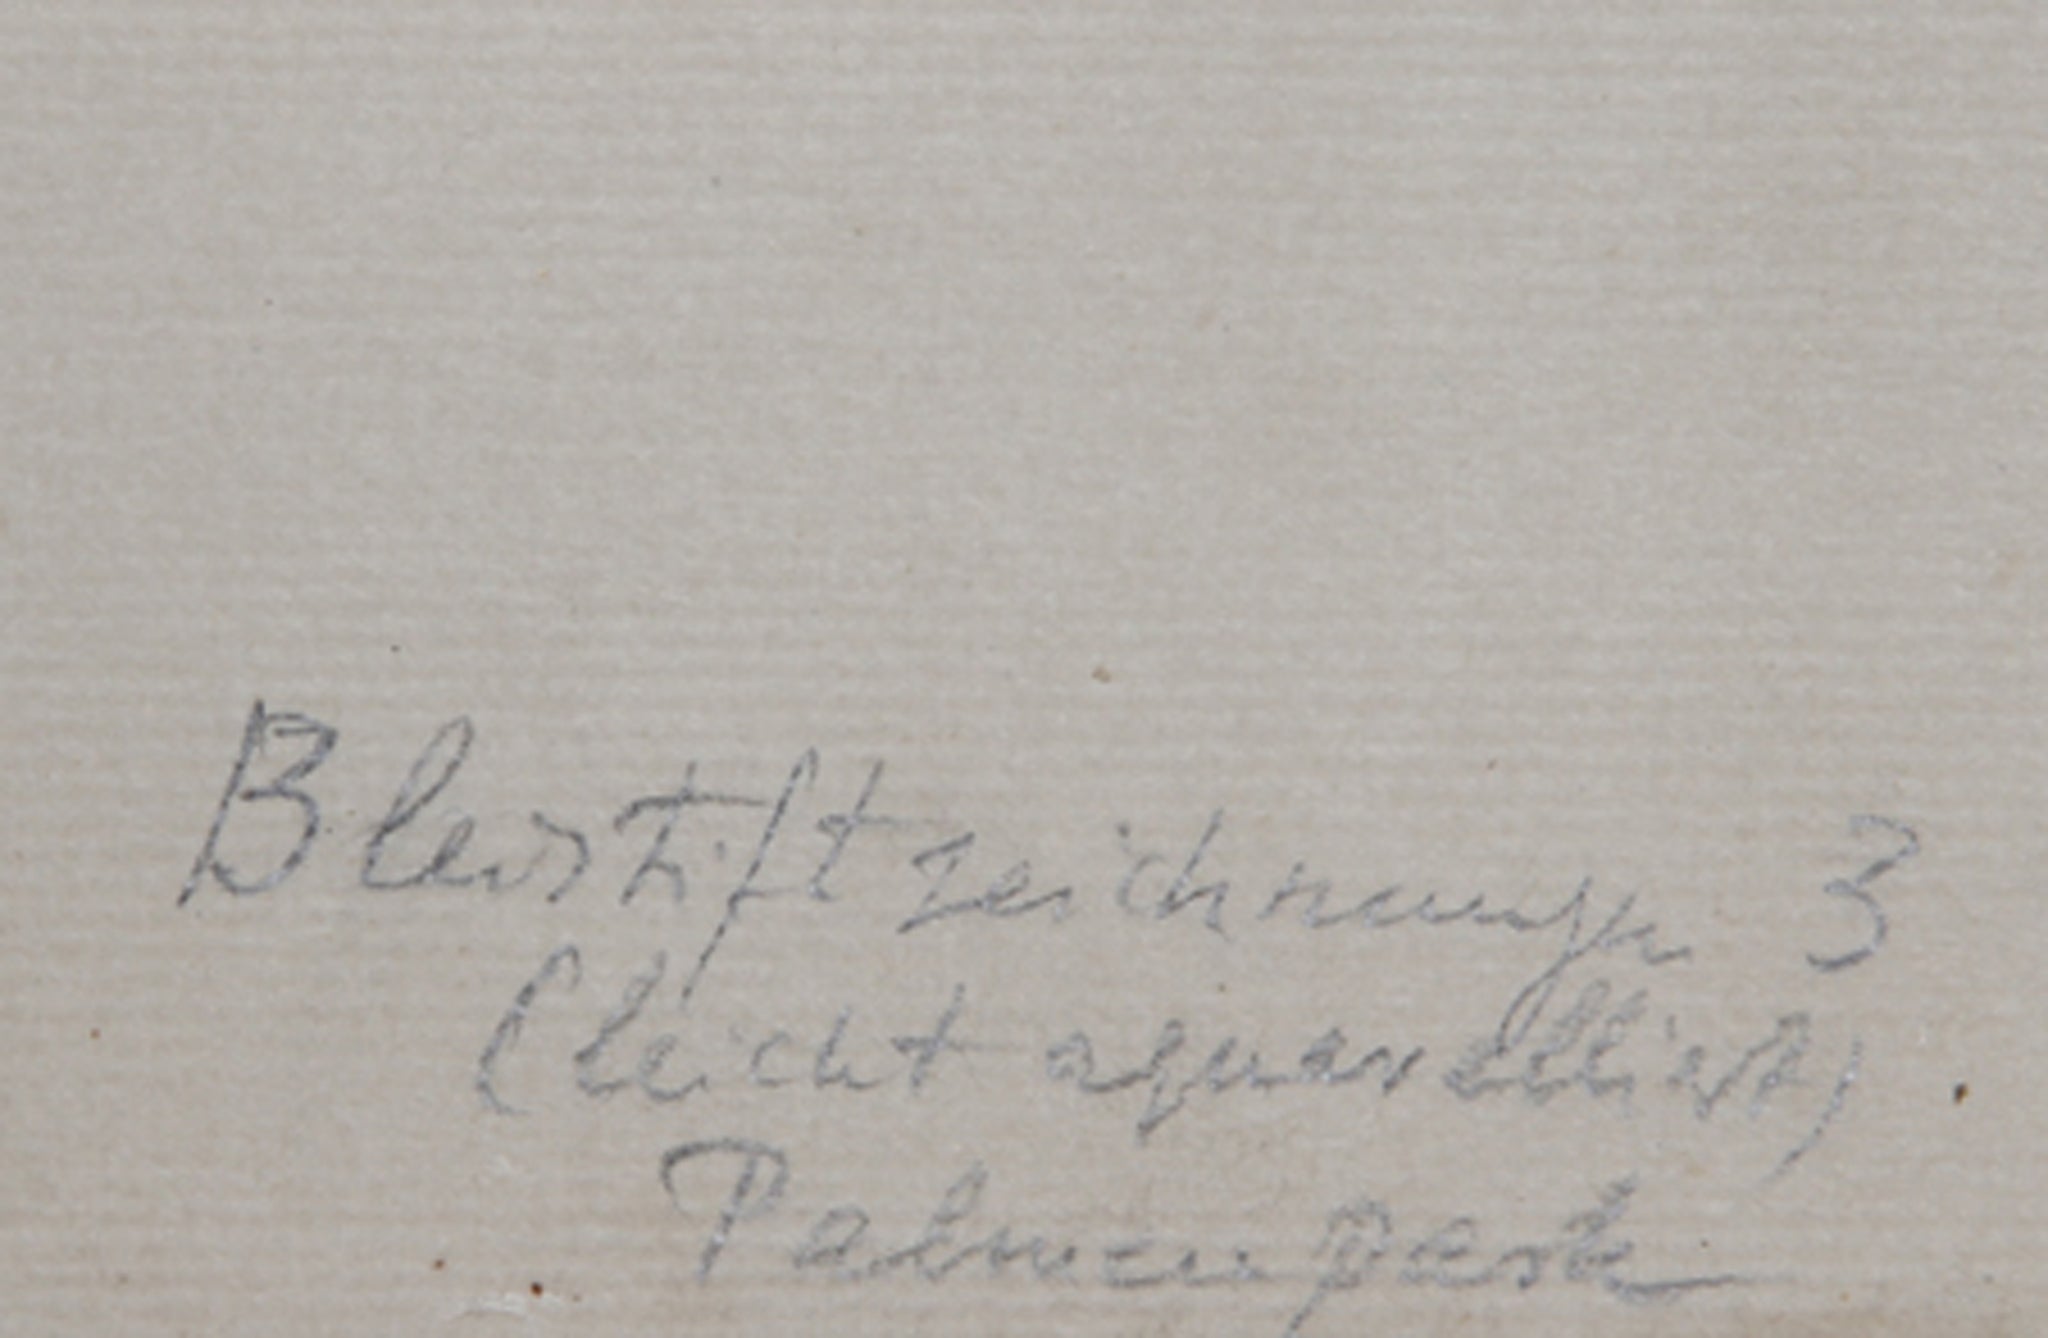 Bleistiftzeichnung 3
(leicht aquarelliert)
Palmenpark